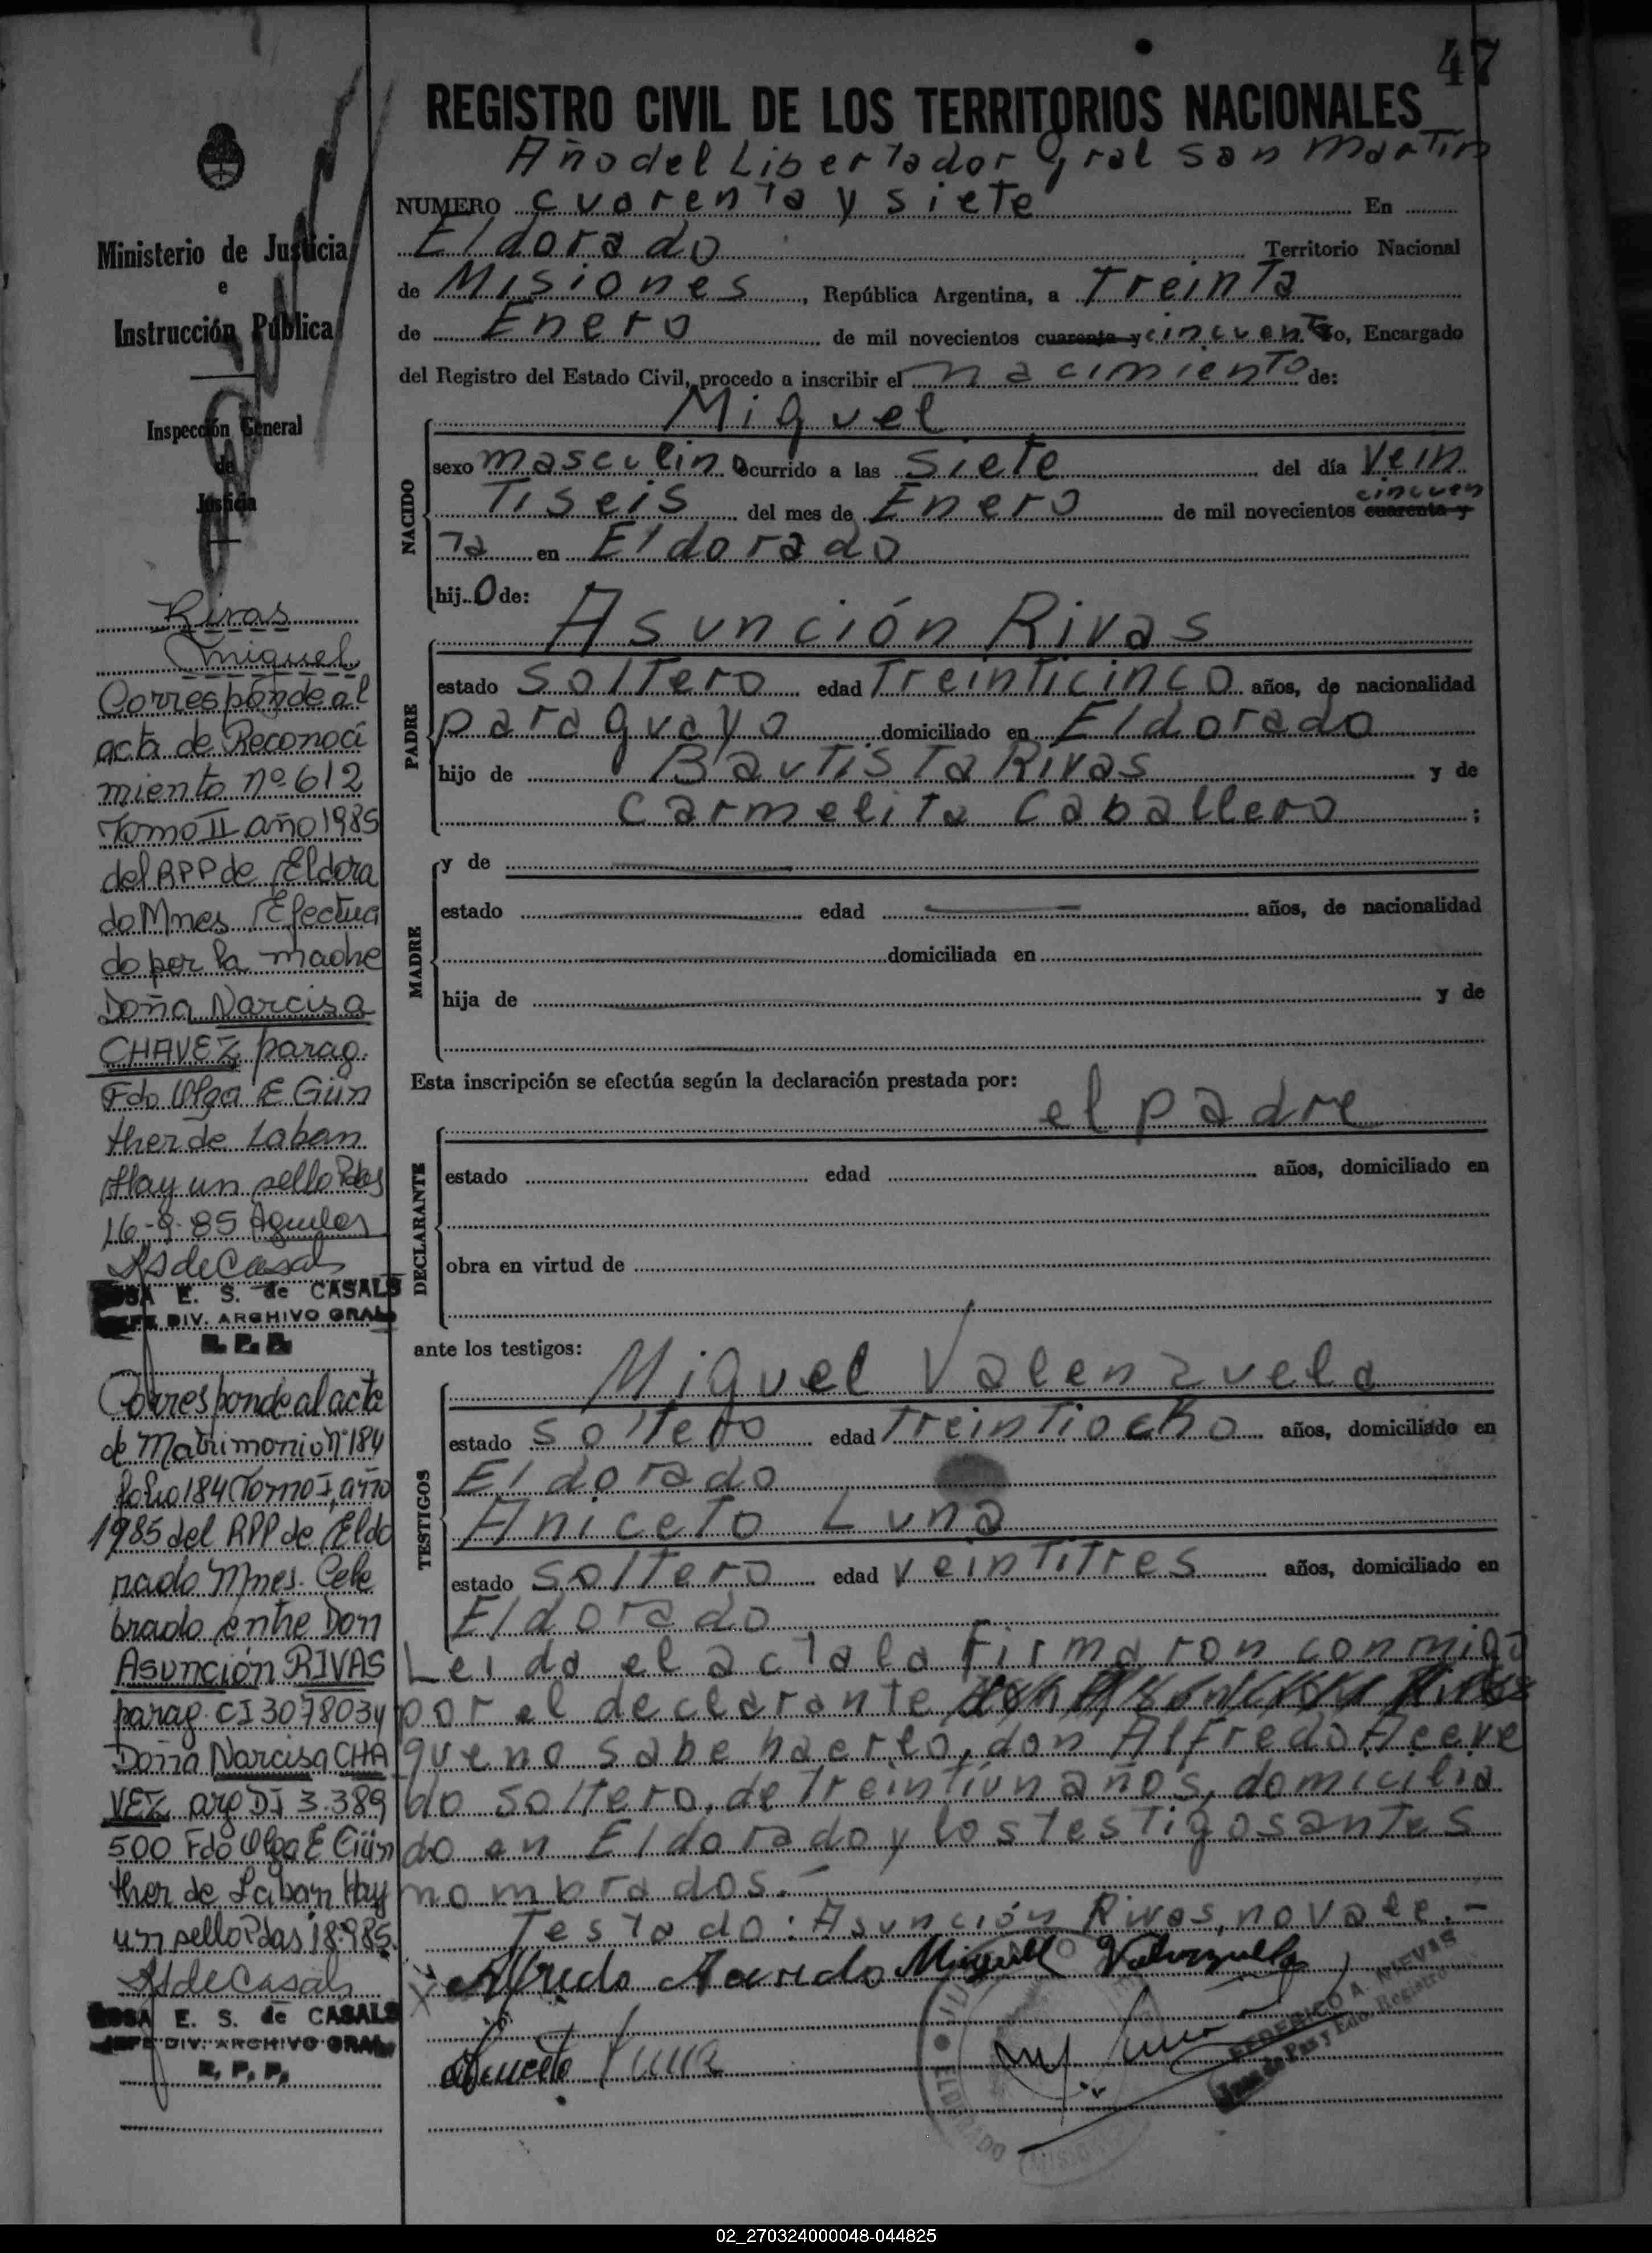 47
REGISTRO CIVIL DE LOS TERRITORIOS NACIONALES
Año del Libertador Gral San Martin
NUMERO cuarenta y siete En
Eldorado Territorio Nacional
de Misiones, República Argentina, a Treinta
de Enero de mil novecientos cuarenta y cincuenta yo, Encargado
del Registro del Estado Civil, procedo a inscribir el nacimiento de:
NACIDO
Miguel
sexo masculino ocurrido a las siete del día Vein
Tiseis del mes de Enero de mil novecientos cuarenta y cincuen
Ta en Eldorado
hijo de:
PADRE
Asunción Rivas
estado soltero edad Treinticinco años, de nacionalidad
paraguayo domiciliado en Eldorado
hijo de Bautista Rivas y de
Carmelita Caballero ;
MADRE
y de
estado edad años, de nacionalidad
domiciliada en
hija de y de
Esta inscripción se efectúa según la declaración prestada por:
DECLARANTE
el padre
estado edad años, domiciliado en
obra en virtud de
ante los testigos:
TESTIGOS
Miguel Valenzuela
estado soltero edad Treintiocho años, domiciliado en
Eldorado
Aniceto Luna
estado soltero edad veintitres años, domiciliado en
Eldorado
Leida el acta la firmaron conmigo
por el declarante
que no sabe haerlo, don Alfredo Aceve
do soltero, de treintiun años, domicilia
do en Eldorado y los testigos antes
nombrados.-
Testado: Asunción Rivas, no vale.-
Alfredo Acevedo Miguel Valenzuela
Aniceto Luna
FEDERICO A. NIEVAS
Juez de Paz y Edo. Registro
ELDORADO
MISIONES
Ministerio de Justicia
e
Instrucción Pública
Inspección General
de
Justicia
Rivas
Miguel
Corresponde al
acta de Reconoci
miento nº 612
Tomo II año 1985
del RPP de Eldora
do Mnes. Efectua
do por la madre
Doña Narcisa
CHAVEZ parag.
Fdo Olga E Gün
ther de Laban
Hay un sello Pdas
16-9-85 Aguilar
RS de Casals
ROSA E. S. de CASALS
JEFE DIV. ARCHIVO GRAL
R. P. P.
Corresponde al acta
de Matrimonio Nº 184
folio 184 Tomo I, año
1985 del RPP de Eldo
rado Mnes. Cele
brado entre Don
Asunción RIVAS
parag. CI 3078034
Doña Narcisa CHA
VEZ arg DI 3.389
500 Fdo Olga E Gün
ther de Laban Hay
un sello Pdas 18-9-85.
RS de Casals
ROSA E. S. de CASALS
JEFE DIV. ARCHIVO GRAL
R. P. P.
02_270324000048-044825